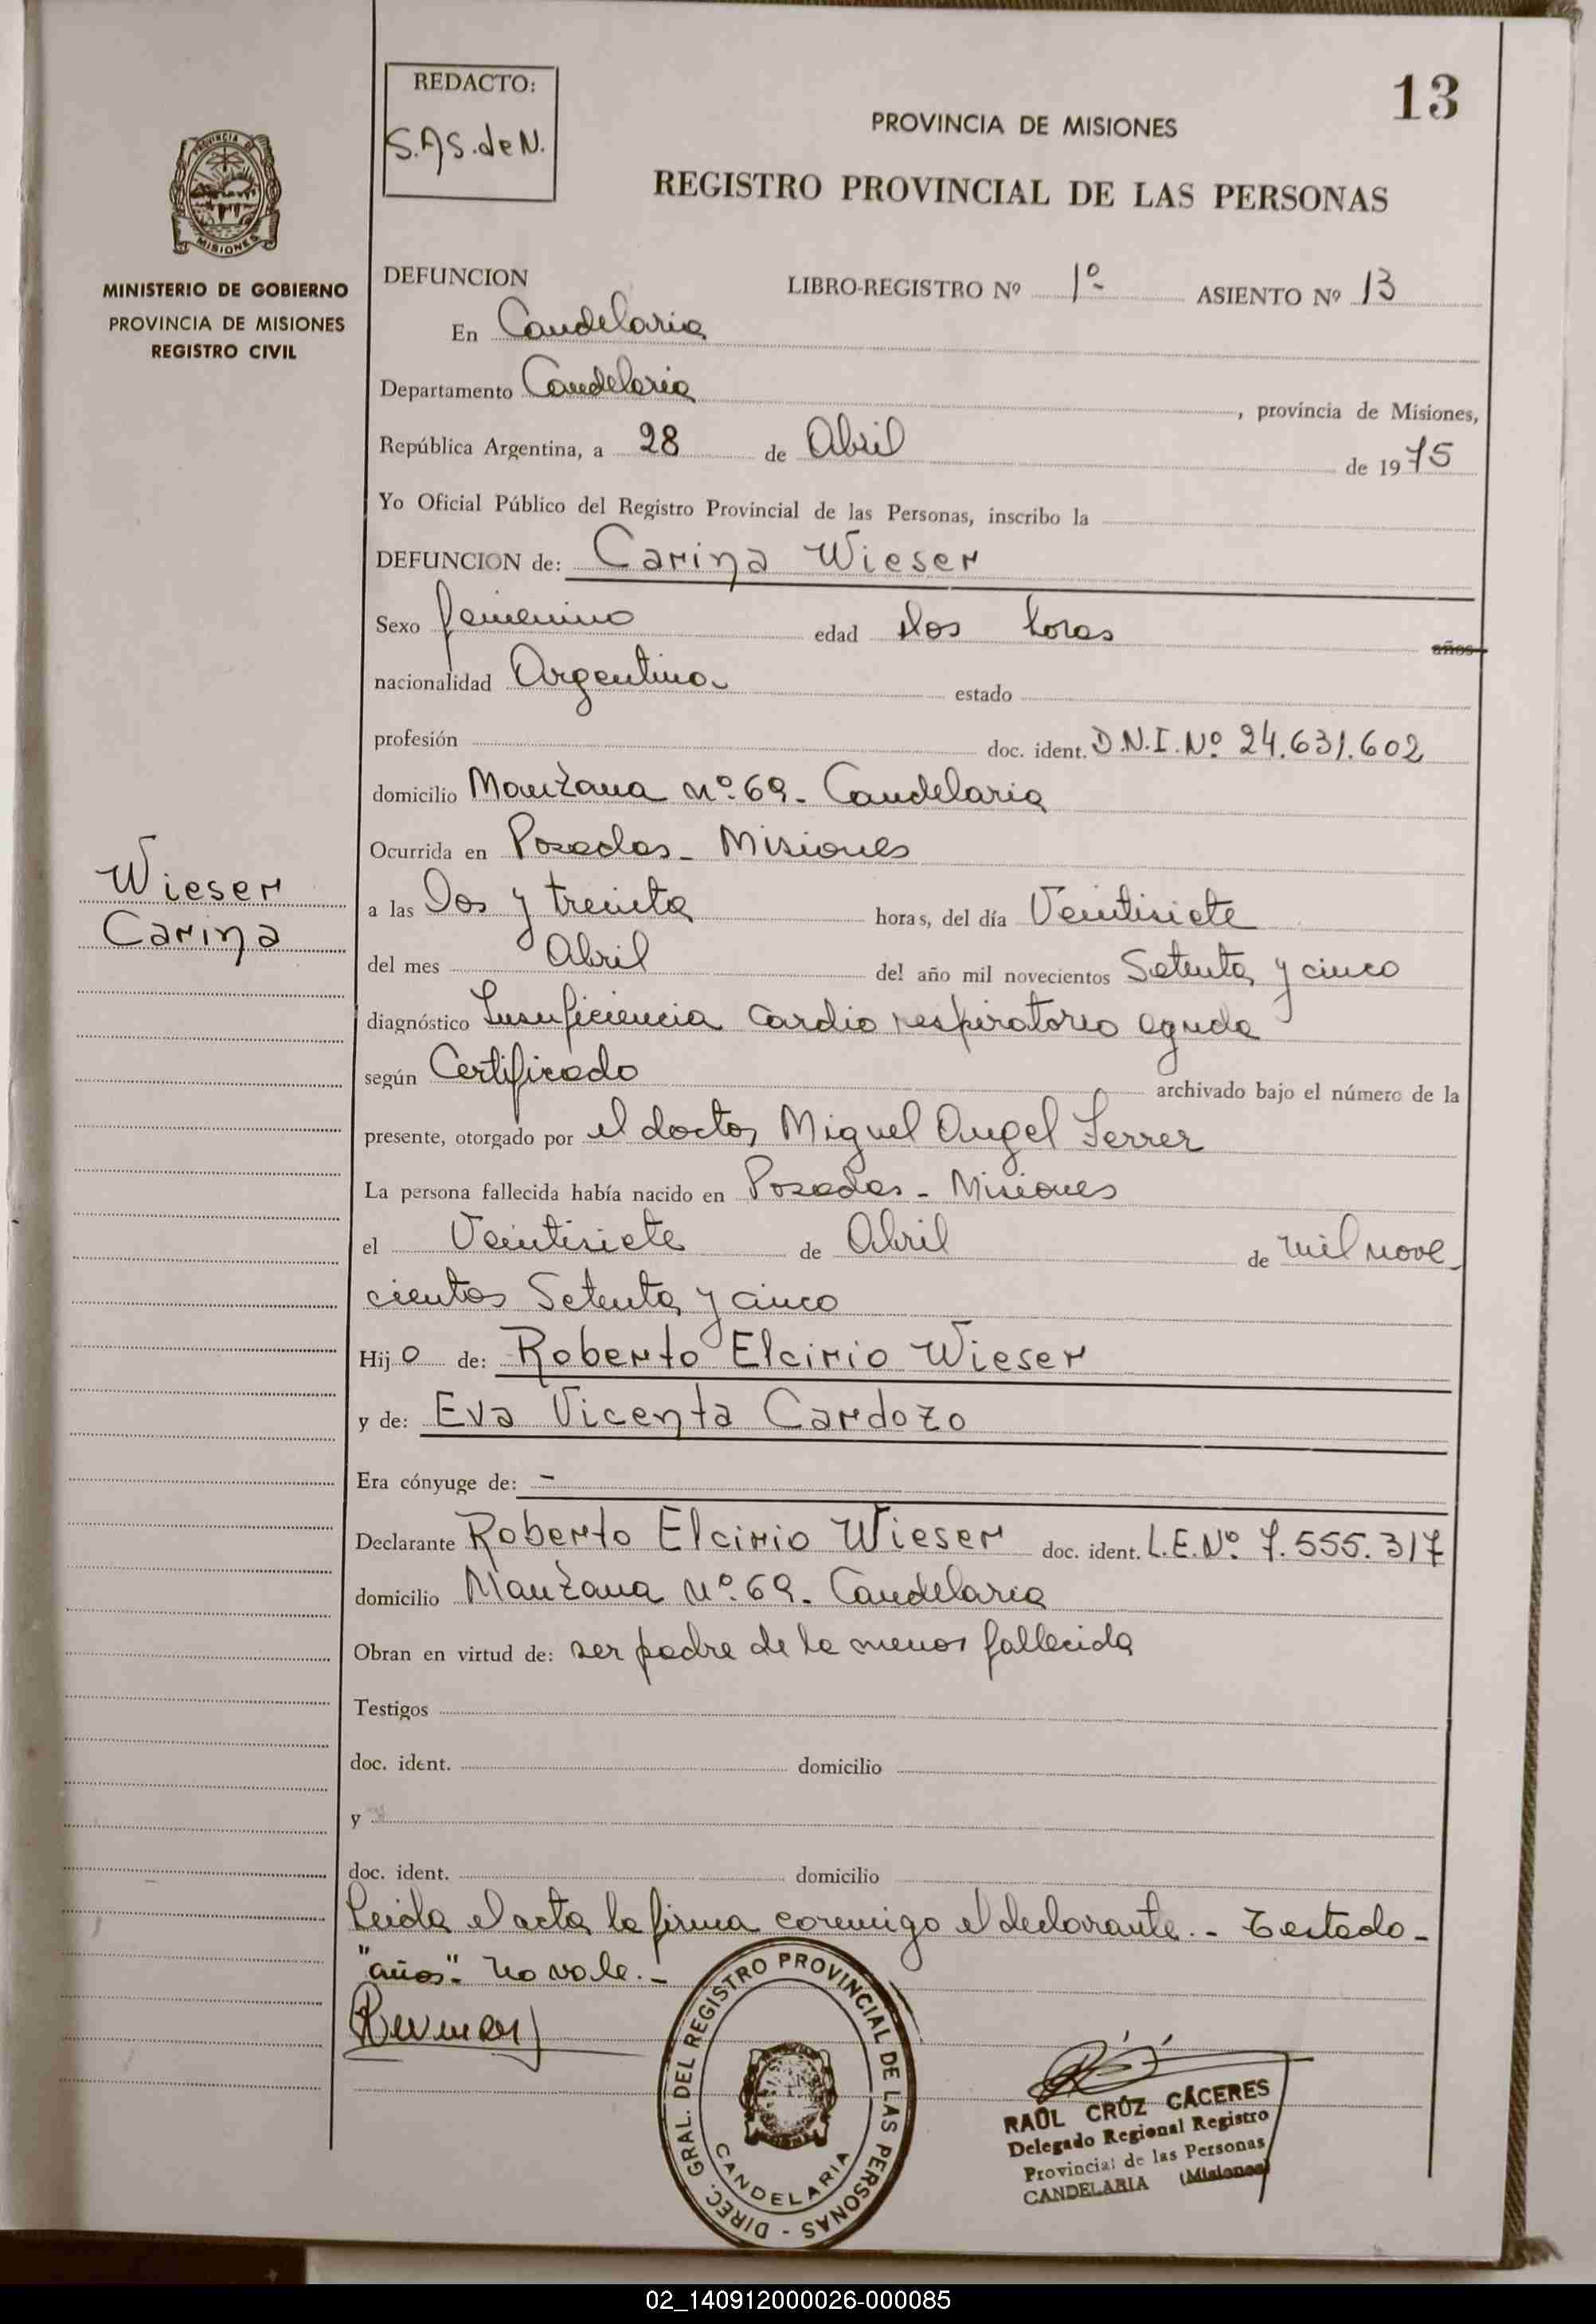 REDACTO:
S.A.S. de N.
13
PROVINCIA DE MISIONES
REGISTRO PROVINCIAL DE LAS PERSONAS
PROVINCIA DE
MISIONES
MINISTERIO DE GOBIERNO
PROVINCIA DE MISIONES
REGISTRO CIVIL
DEFUNCION LIBRO-REGISTRO Nº 1º ASIENTO Nº 13
En Candelaria
Departamento Candelaria, provincia de Misiones,
República Argentina, a 28 de Abril de 1975
Yo Oficial Público del Registro Provincial de las Personas, inscribo la
DEFUNCION de: Carina Wieser
Sexo femenino edad dos horas años
nacionalidad Argentina estado
profesión doc. ident. D.N.I. Nº 24.631.602
domicilio Manzana nº 69- Candelaria
Ocurrida en Posadas - Misiones
Wieser
Carina
a las Dos y treinta horas, del día Veintisiete
del mes Abril del año mil novecientos Setenta y cinco
diagnóstico Insuficiencia cardio respiratorio aguda
según Certificado archivado bajo el número de la
presente, otorgado por el doctor Miguel Angel Ferrer
La persona fallecida había nacido en Posadas - Misiones
el Veintisiete de Abril de mil nove-
cientos Setenta y cinco
Hijo de: Roberto Elcirio Wieser
y de: Eva Vicenta Cardozo
Era cónyuge de: -
Declarante Roberto Elcirio Wieser doc. ident. L.E. Nº 7.555.317
domicilio Manzana nº 69- Candelaria
Obran en virtud de: ser padre de la menor fallecida
Testigos
doc. ident. domicilio
y
doc. ident. domicilio
Leida el acta la firma conmigo el declarante.- Testado-
"años"- no vale.-
DIREC. GRAL. DEL REGISTRO PROVINCIAL DE LAS PERSONAS -
CANDELARIA
RAÚL CRÚZ CÁCERES
Delegado Regional Registro
Provincial de las Personas
CANDELARIA (Misiones)
02_140912000026-000085